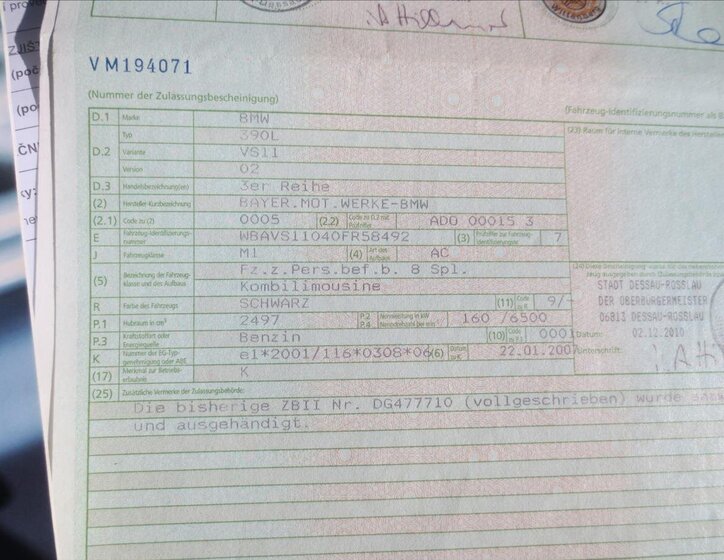 VM194071
(Nummer der Zulassungsbescheinigung)
(Fahrzeug-Identifizierungsnummer als
D.1 Marke BMW
Typ 390L
D.2 Variante VS11
Version 02
D.3 Handelsbezeichnung(en) 3er Reihe
(2) Hersteller-Kurzbezeichnung BAYER.MOT.WERKE-BMW
(2.1) Code zu (2) 0005 (2.2) Code zu D.2 mit Prüfziffer AD0 00015 3
E Fahrzeug-Identifizierungsnummer WBAVS11040FR58492 (3) Prüfziffer zur Fahrzeug-Identifizierungsnr. 7
J Fahrzeugklasse M1 (4) Art des Aufbaus AC
(5) Bezeichnung der Fahrzeugklasse und des Aufbaus Fz.z.Pers.bef.b. 8 Spl.
Kombilimousine
R Farbe des Fahrzeugs SCHWARZ (11) Code zu R 9/-
P.1 Hubraum in cm³ 2497 P.2 P.4 Nennleistung in kW Nenndrehzahl bei min⁻¹ 160 /6500
P.3 Kraftstoffart oder Energiequelle Benzin (10) Code zu P.3 0001
K Nummer der EG-Typgenehmigung oder ABE e1*2001/116*0308*06 (6) Datum zu K 22.01.2007
(17) Merkmal zur Betriebserlaubnis K
(25) Zusätzliche Vermerke der Zulassungsbehörde:
Die bisherige ZBII Nr. DG477710 (vollgeschrieben) wurde
und ausgehändigt.
(23) Raum für interne Vermerke des Herstellers
STADT DESSAU-ROSSLAU
DER OBERBÜRGERMEISTER
06813 DESSAU-ROSSLAU
Datum: 02.12.2010
Unterschrift: